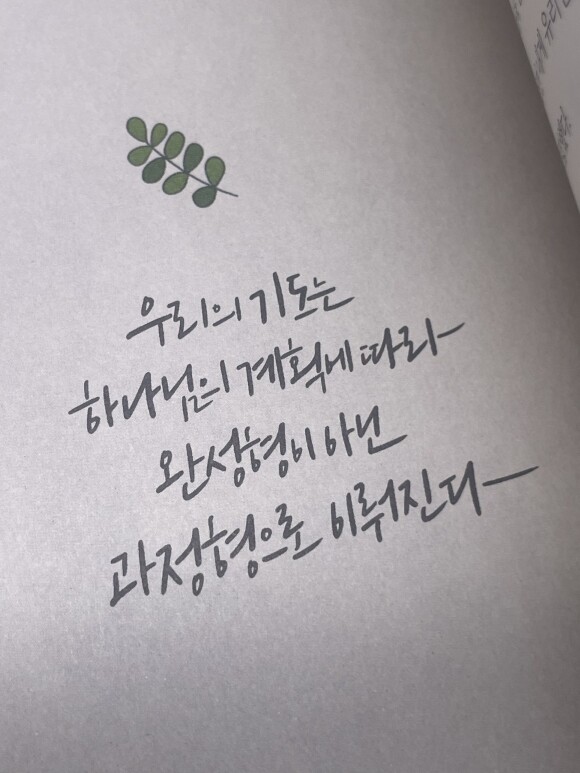 우리의 기도는
하나님의 계획에 따라
완성형이 아닌
과정형으로 이뤄진다